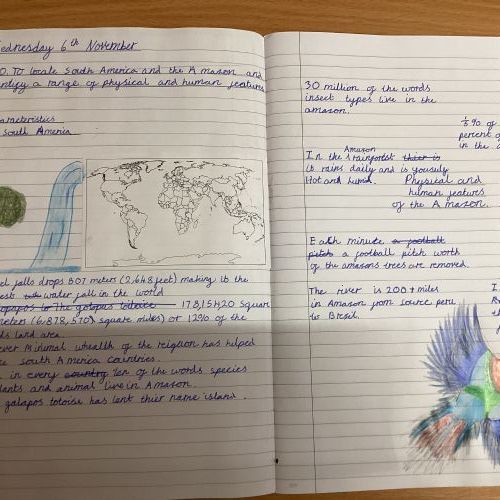 Wednesday 6th November
LO: To locate South America and the Amazon and
identify a range of physical and human features
characteristics
South America
el falls drops 807 meters (2,648 feet) making it the
water fall in the world
17,815,420 square
meters (6,878,570) square miles) or 12% of the
land area
Minimal whealth of the reigion has helped
South America countries.
in every country ten of the words species
plants and animal live in Amazon.
galapos totoise has lent thier name island.
30 million of the words
insect types live in the
amazon.
In the Amazon rainforest thier is
it rains daily and is yousely
Hot and humid.
Physical and
human features
of the Amazon.
Each minute a football
pitch a football pitch worth
of the amazons trees are removed.
The river is 200+ miles
in Amazon from source peru
to Bresil.
% of
percent of
in the
I